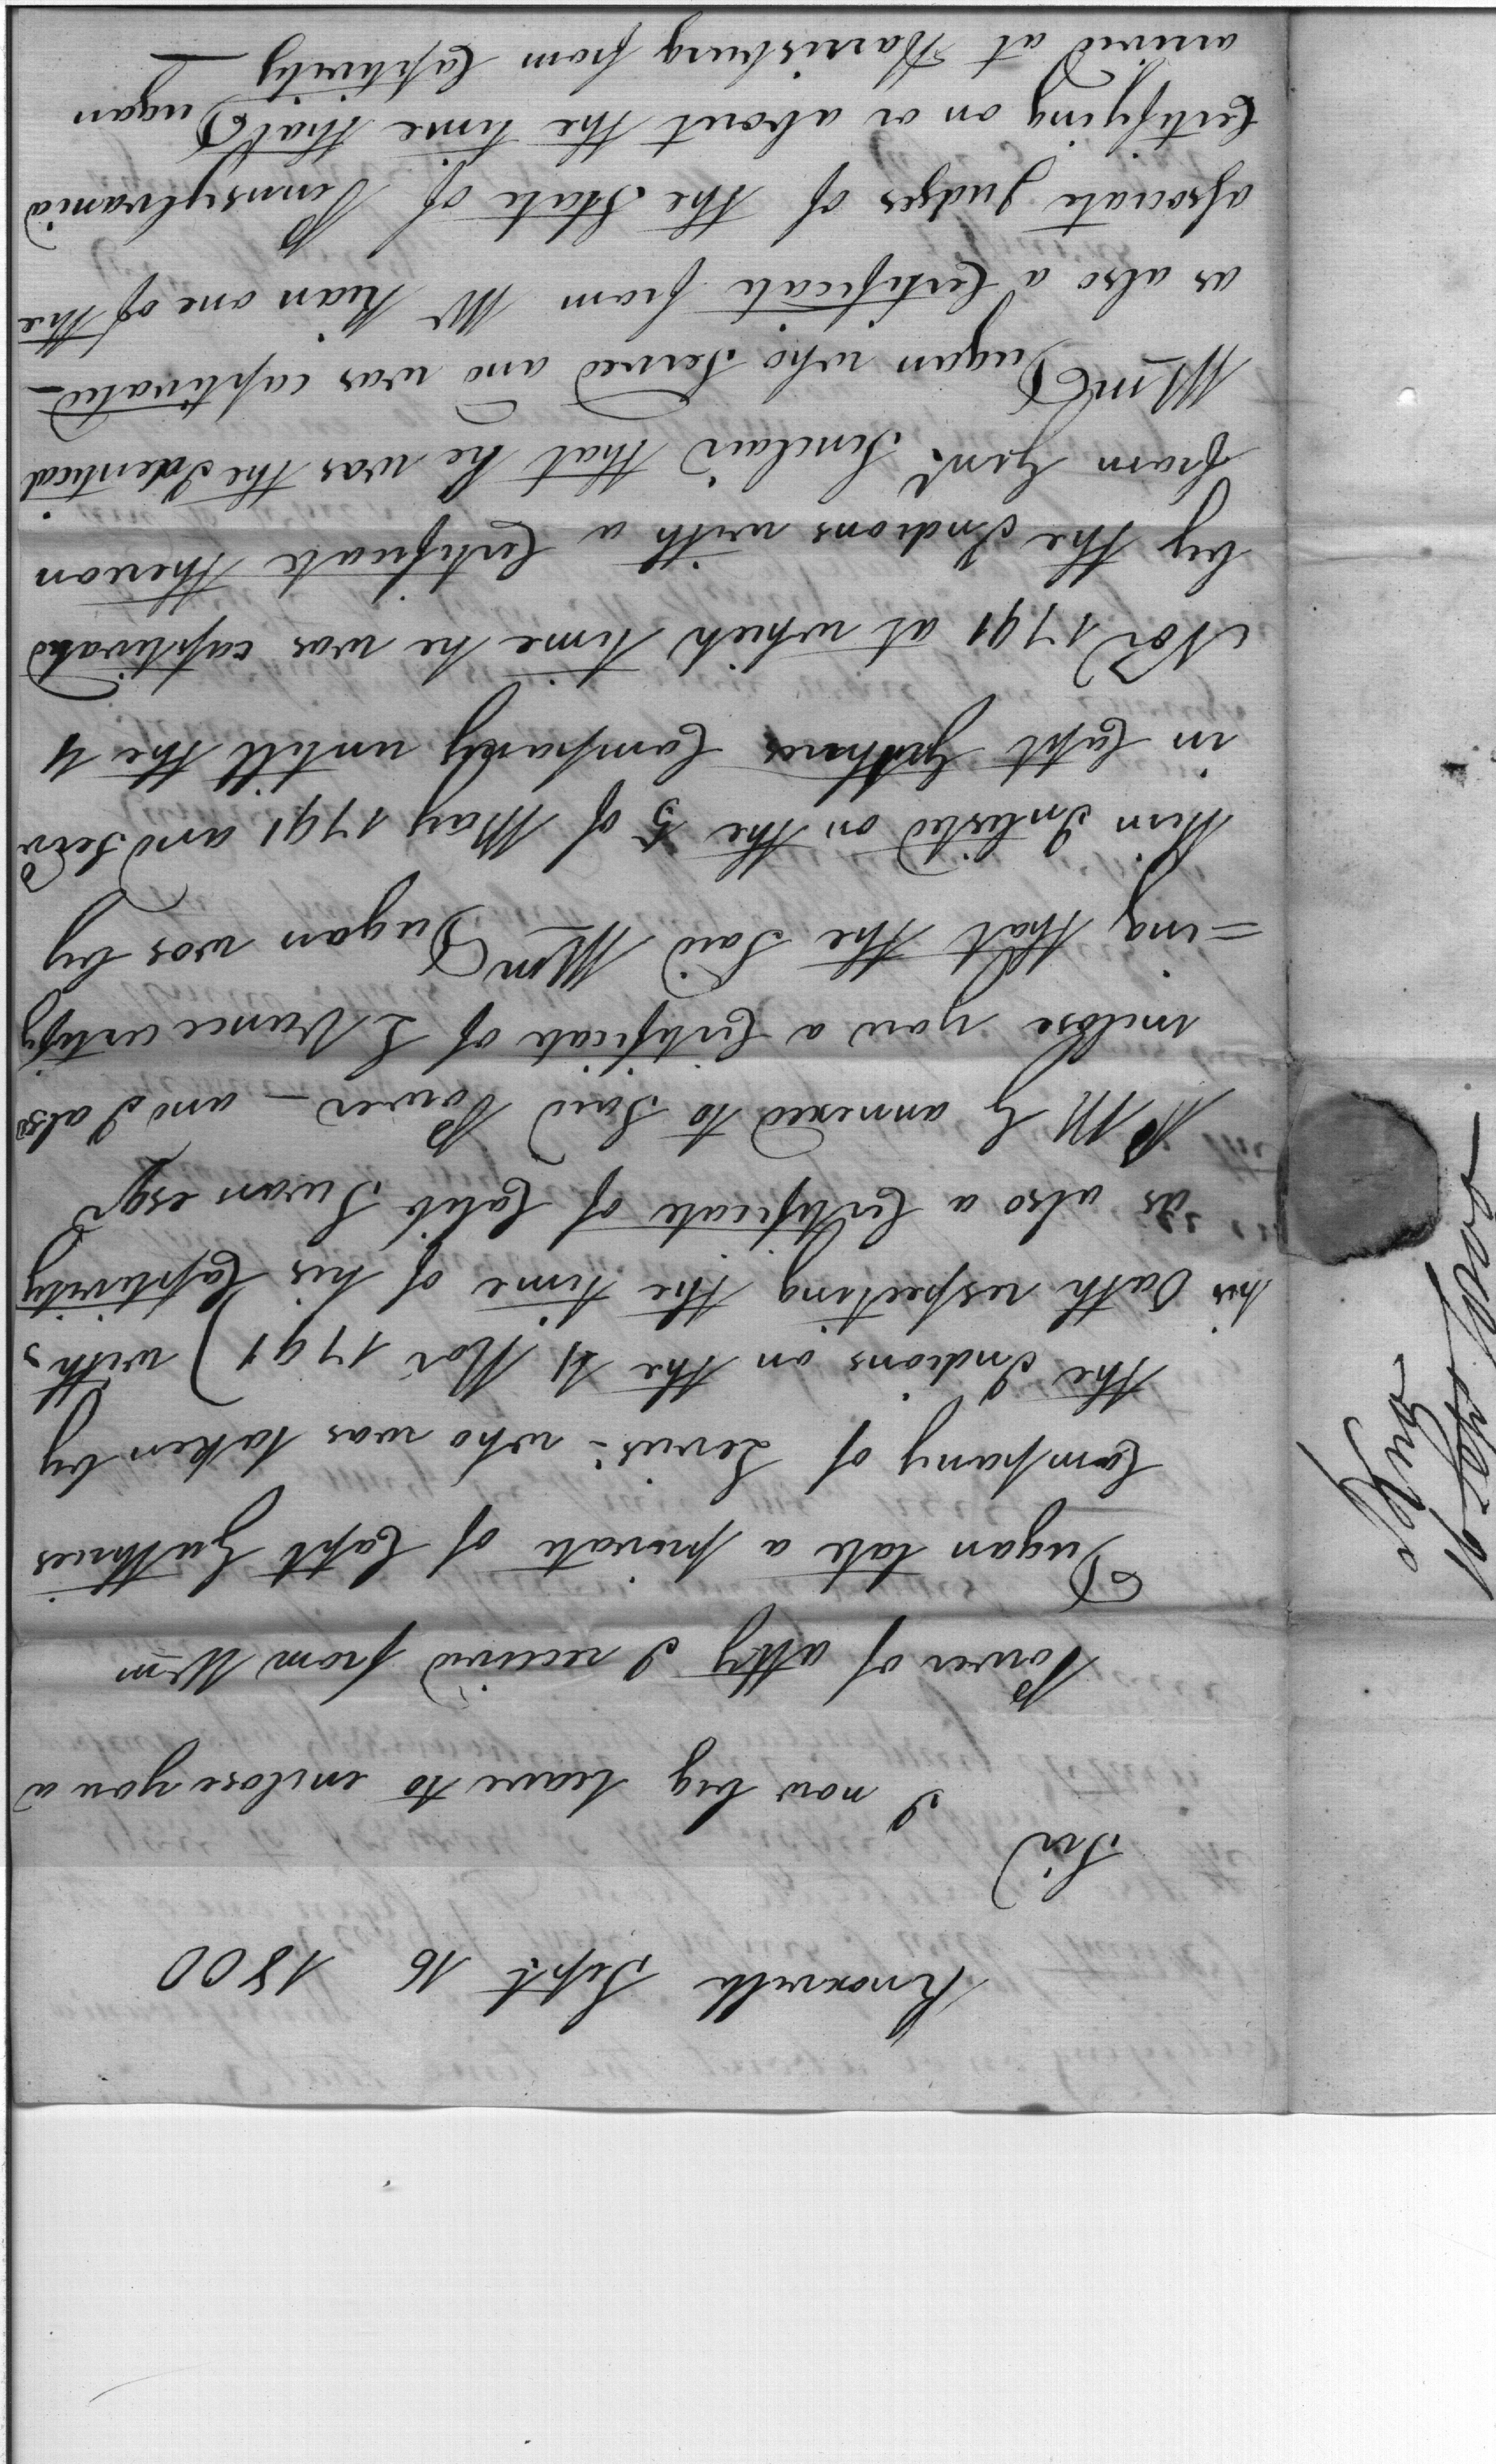 Knoxville Sept 16 1800
Sir
I now beg leave to enclose you a
Power of atty I received from Wm
Dugan late a private of Capt Guthries
Company of Levies - who was taken by
the Indions on the 4 Nov 1791) with
his Oath respecting the time of his Captivity
as also a Certificate of Caleb Swan esqr
P M G annexed to Said Power - and I also
inclose you a Certificate of J Vance certify
=ing that the Said Wm Dugan was by
Him Inlisted on the 5 of May 1791 and Servd
in Capt Guthries Company untill the 4
Novr 1791 at which time he was captivated
by the Indions with a Certificate thereon
from Genl Sinclair that he was the Identical
Wm Dugan who Served and was captivated -
as also a Certificate from Mr Kean one of the
associate Judges of the State of Pennsylvania
Certifying on or about the time that Dugan
arrived at Harrisburg from Captivity -
16 Sept 1800